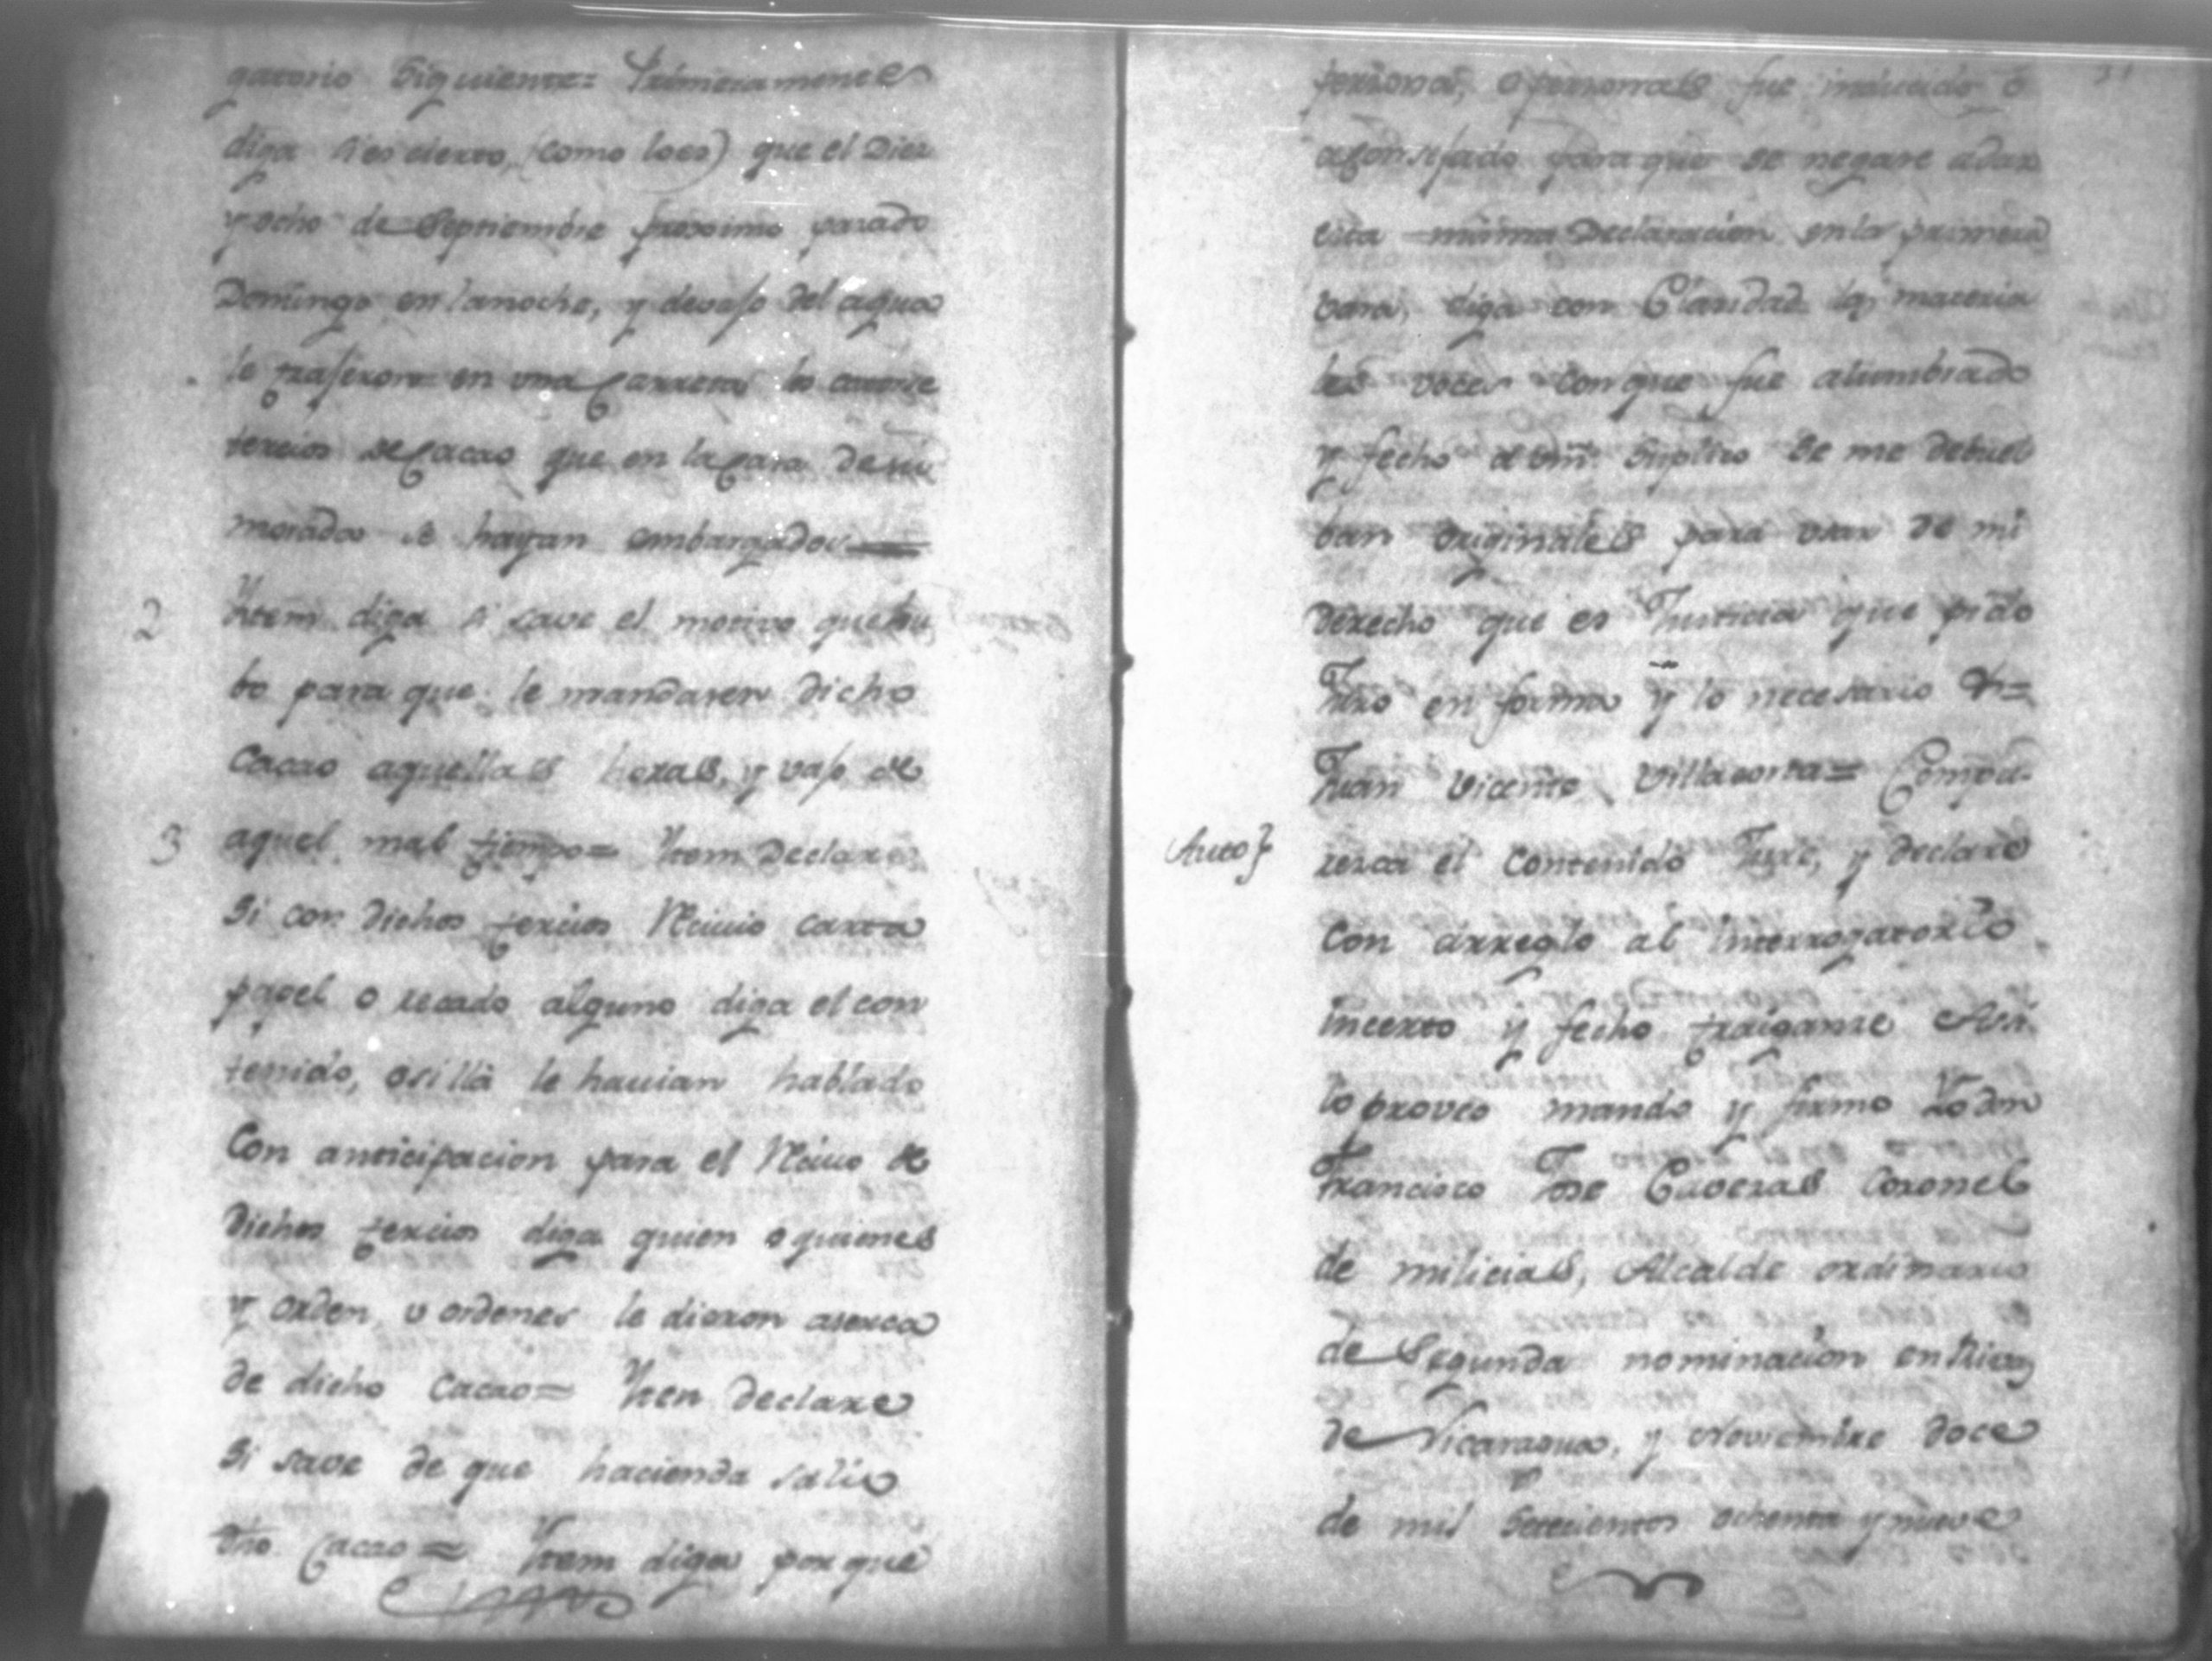 gatorio Siguiente= Primeramente
diga si es cierto, (como lo es) que el Diez
y ocho de Septiembre proximo pasado
Domingo en la noche, y devajo del agua
le trajeron en una Carreta los catorce
tercios de Cacao que en la Casa de su
morada se hayan embargados=
2 Ytem diga si save el motivo que hu
bo para que le mandasen dicho
Cacao aquellas horas, y vajo de
3 aquel mal tiempo= Ytem Declare
Si con dichos tercios Reciuio carta
papel o recado alguno diga el con
tenido, o si llà le hauian hablado
Con anticipacion para el Reciuo de
dichos tercios diga quien o quienes
y orden, u ordenes le dieron aserca
de dicho Cacao= Yten Declare
Si save de que hacienda salio
dho. Cacao= Ytem diga por que
31
persona, o personas fue inducido ó
aconsejado para que se negase a dar
esta misma Declaracion en la primera
vara, diga con Claridad la materia
las voces con que fue alumbrado
y fecho a vm. Suplico Se me debuel
ban originales para usar de mi
derecho que es Justicia que pido
Juro en forma y lo necesario &=
Juan Vicente Villacorta= Compa-
Auto} resca el Contenido Jure, y declare
Con arreglo al Interrogatorio
incerto y fecho traiganse Asi
lo proveo mando y firmo Yo don
Francisco Jose Cuveras Coronel
de milicias, Alcalde ordinario
de Segunda nominacion en Rivas
de Nicaragua, y Noviembre doce
de mil Setecientos ochenta y nueve